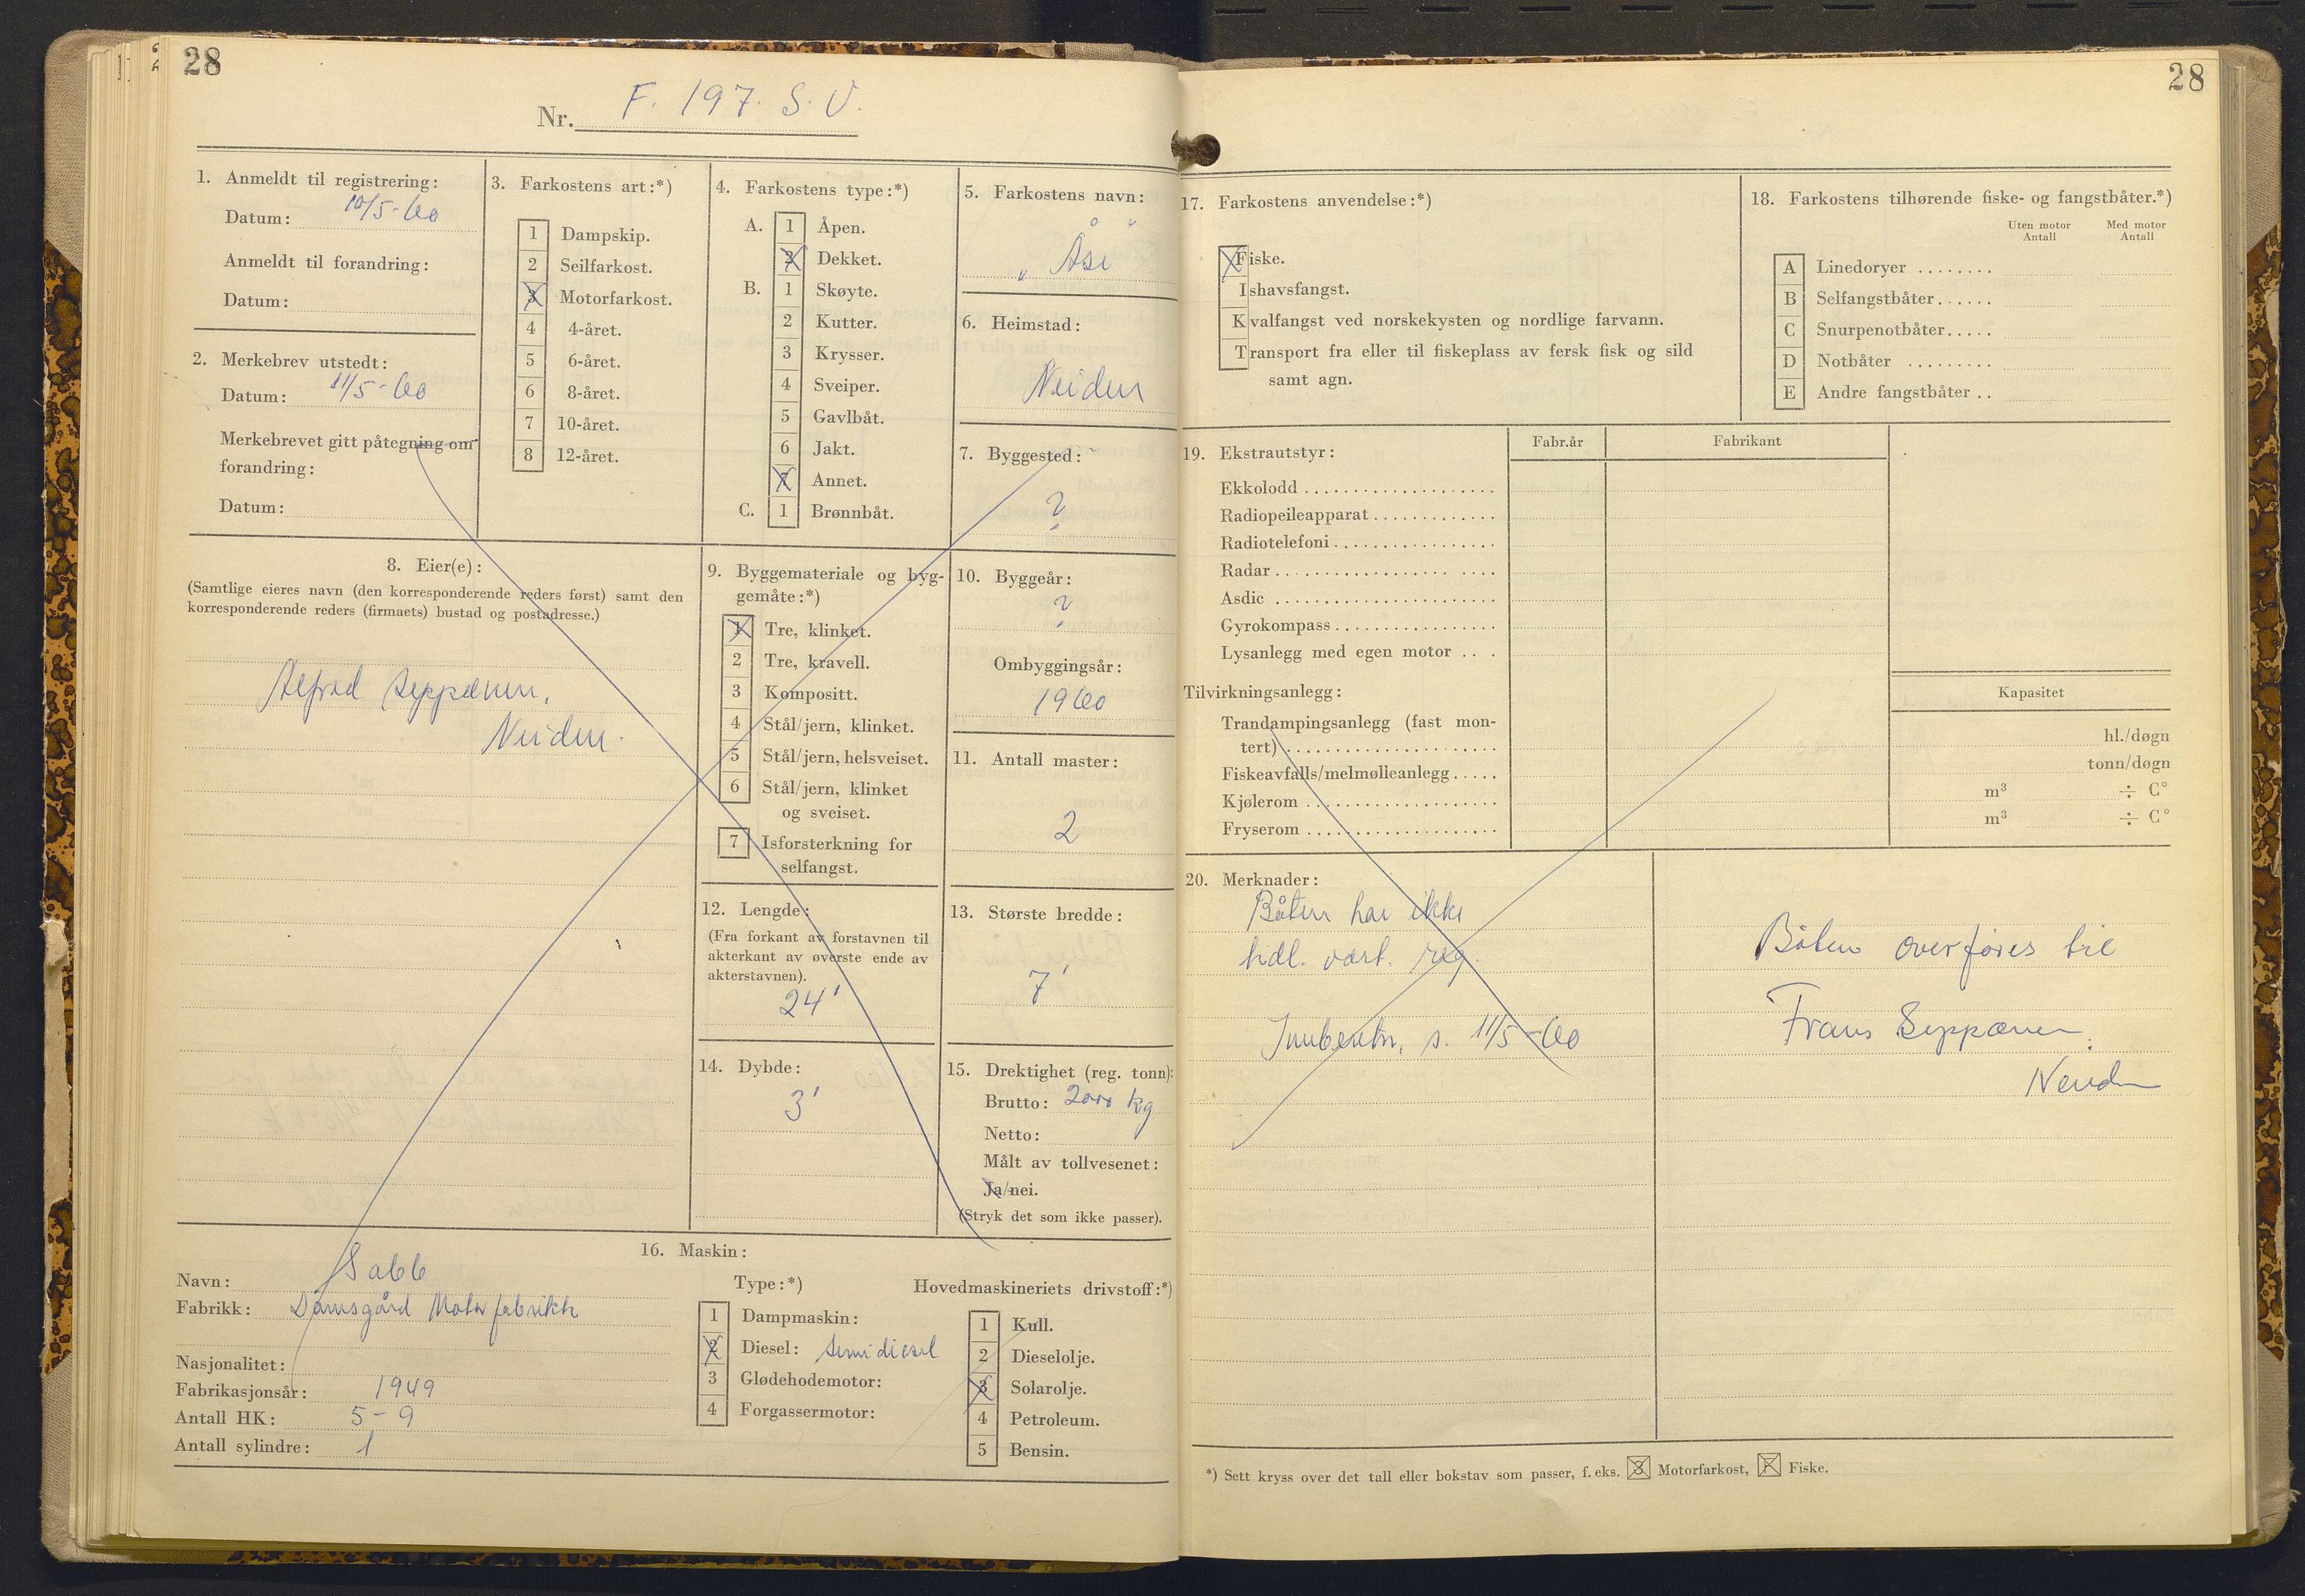 28
Nr. F. 197. S. V.
1. Anmeldt til registrering:
Datum: 10/5-60
Anmeldt til forandring:
Datum:
2. Merkebrev utstedt:
Datum: 11/5-60
Merkebrevet gitt påtegning om
forandring:
Datum:
3. Farkostens art:*)
1 Dampskip.
2 Seilfarkost.
3 Motorfarkost.
4 4-året.
5 6-året.
6 8-året.
7 10-året.
8 12-året.
4. Farkostens type:*)
A. 1 Åpen.
2 Dekket.
B. 1 Skøyte.
2 Kutter.
3 Krysser.
4 Sveiper.
5 Gavlbåt.
6 Jakt.
7 Annet.
C. 1 Brønnbåt.
5. Farkostens navn:
„Åsi"
6. Heimstad:
Neiden
7. Byggested:
?
8. Eier(e):
(Samtlige eieres navn (den korresponderende reders først) samt den
korresponderende reders (firmaets) bustad og postadresse.)
Alfred Seppænen,
Neiden.
9. Byggemateriale og byg-
gemåte:*)
1 Tre, klinket.
2 Tre, kravell.
3 Kompositt.
4 Stål/jern, klinket.
5 Stål/jern, helsveiset.
6 Stål/jern, klinket
og sveiset.
7 Isforsterkning for
selfangst.
10. Byggeår:
?
Ombyggingsår:
1960
11. Antall master:
2
12. Lengde:
(Fra forkant av forstavnen til
akterkant av øverste ende av
akterstavnen).
24'
13. Største bredde:
7'
14. Dybde:
3'
15. Drektighet (reg. tonn):
Brutto: 2000 kg
Netto:
Målt av tollvesenet:
Ja/nei.
(Stryk det som ikke passer).
16. Maskin:
Navn: Sabb
Fabrikk: Damsgård Motorfabrikk
Nasjonalitet:
Fabrikasjonsår: 1949
Antall HK: 5-9
Antall sylindre: 1
Type:*)
1 Dampmaskin:
2 Diesel: Semidiesel
3 Glødehodemotor:
4 Forgassermotor:
Hovedmaskineriets drivstoff:*)
1 Kull.
2 Dieselolje.
3 Solarolje.
4 Petroleum.
5 Bensin.
28
17. Farkostens anvendelse:*)
Fiske.
Ishavsfangst.
Kvalfangst ved norskekysten og nordlige farvann.
Transport fra eller til fiskeplass av fersk fisk og sild
samt agn.
18. Farkostens tilhørende fiske- og fangstbåter.*)
Uten motor Med motor
Antall Antall
A Linedoryer ........
B Selfangstbåter......
C Snurpenotbåter.....
D Notbåter .........
E Andre fangstbåter ..
19. Ekstrautstyr:
Fabr.år Fabrikant
Ekkolodd ....................
Radiopeileapparat.............
Radiotelefoni.................
Radar.................. ....
Asdic .......................
Gyrokompass.................
Lysanlegg med egen motor ...
Tilvirkningsanlegg:
Kapasitet
Trandampingsanlegg (fast mon-
tert) ...................... hl./døgn
Fiskeavfalls/melmølleanlegg..... tonn/døgn
Kjølerom .................... m³ ÷ C°
Fryserom .................... m³ ÷ C°
20. Merknader:
Båten har ikke
tidl. vært. reg.
s. 11/5-60
Båten overføres til
Frans Seppænen
Neiden
*) Sett kryss over det tall eller bokstav som passer, f. eks. 3 Motorfarkost, F Fiske.